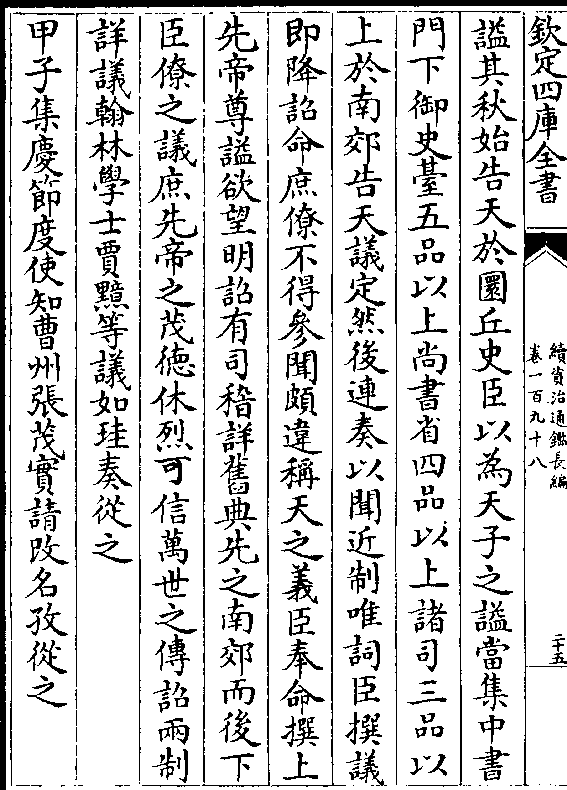 欽定四庫全書
續資治通鑑長編
卷一百九十八
二十五
諡其秋始告天於圜丘史臣以為天子之諡當集中書
門下御史臺五品以上尚書省四品以上諸司三品以
上於南郊告天議定然後連奏以聞近制唯詞臣撰議
即降詔命庶僚不得參聞頗違稱天之義臣奉命撰上
先帝尊諡欲望明詔有司稽詳舊典先之南郊而後下
臣僚之議庶先帝之茂德休烈可信萬世之傳詔兩制
詳議翰林學士賈黯等議如珪奏從之
甲子集慶節度使知曹州張茂實請改名孜從之